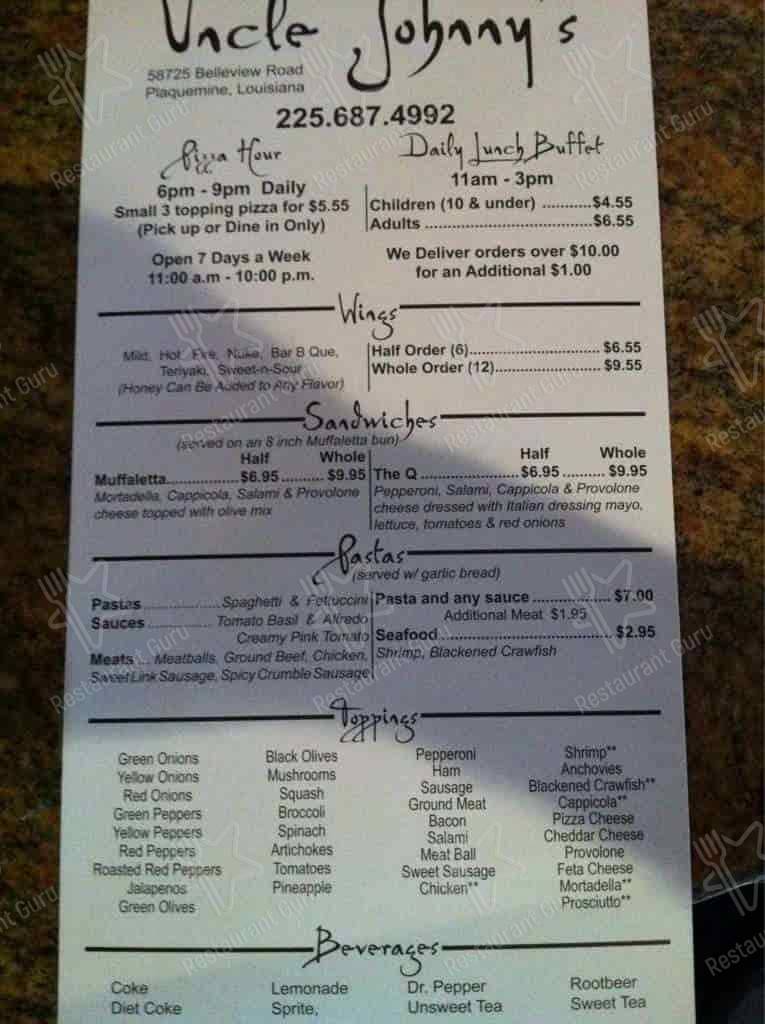 Uncle Johnny's
58725 Belleview Road
Plaquemine, Louisiana
225.687.4992
Pizza Hour
6pm - 9pm Daily
Small 3 topping pizza for $5.55
(Pick up or Dine in Only)
Open 7 Days a Week
11:00 a.m - 10:00 p.m.
Daily Lunch Buffet
11am - 3pm
Children (10 & under) ...........$4.55
Adults .....................................$6.55
We Deliver orders over $10.00
for an Additional $1.00
Wings
Mild, Hot, Fire, Nuke, Bar B Que,
Teriyaki, Sweet-n-Sour
(Honey Can Be Added to Any Flavor)
Half Order (6)............................. $6.55
Whole Order (12)........................ $9.55
Sandwiches
(served on an 8 inch Muffaletta bun)
Half Whole
Muffaletta................ $6.95 .......... $9.95
Mortadella, Cappicola, Salami & Provolone
cheese topped with olive mix
Half Whole
The Q ..................... $6.95 .......... $9.95
Pepperoni, Salami, Cappicola & Provolone
cheese dressed with Italian dressing mayo,
lettuce, tomatoes & red onions
Pastas
(served w/ garlic bread)
Pastas ................. Spaghetti & Fettuccini
Sauces ............... Tomato Basil & Alfredo
Creamy Pink Tomato
Meats ... Meatballs, Ground Beef, Chicken,
Sweet Link Sausage, Spicy Crumble Sausage
Pasta and any sauce ................. $7.00
Additional Meat $1.95
Seafood ..................................... $2.95
Shrimp, Blackened Crawfish
Toppings
Green Onions
Yellow Onions
Red Onions
Green Peppers
Yellow Peppers
Red Peppers
Roasted Red Peppers
Jalapenos
Green Olives
Black Olives
Mushrooms
Squash
Broccoli
Spinach
Artichokes
Tomatoes
Pineapple
Pepperoni
Ham
Sausage
Ground Meat
Bacon
Salami
Meat Ball
Sweet Sausage
Chicken**
Shrimp**
Anchovies
Blackened Crawfish**
Cappicola**
Pizza Cheese
Cheddar Cheese
Provolone
Feta Cheese
Mortadella**
Prosciutto**
Beverages
Coke
Diet Coke
Lemonade
Sprite,
Dr. Pepper
Unsweet Tea
Rootbeer
Sweet Tea
Restaurant Guru